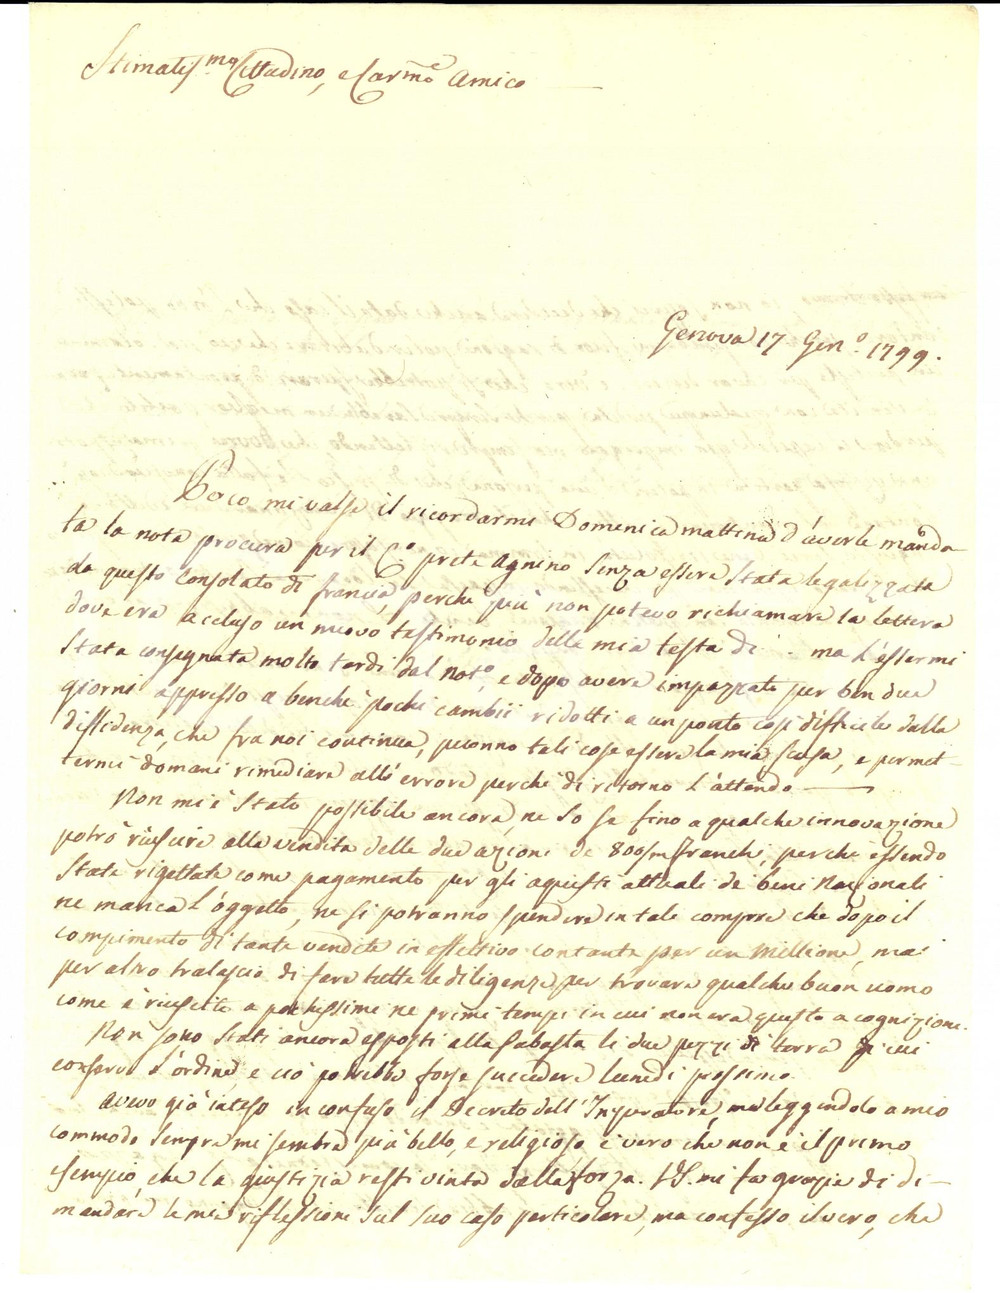 Stimatis.mo Cittadino, e Carmo. Amico
Genova 17. Gen.o 1799.
Poco mi valse il ricordarmi Domenica mattina d'averle manda
ta la nota procura per il C.o prete Agnino senza essere stata legalizzata
da questo Consolato di francia, perche piu non potevo richiamare la lettera
dove era accluso un nuovo testimonio della mia testa di .. ma l'essermi
stata consegnata molto tardi dal not.o, e dopo avere impazzato per ben due
giorni appresso a benche pochi cambii ridotti a un ponto cosi difficile dalla
diffidenza, che fra noi continua, ponno tali cose essere la mia scusa, e permet-
termi domani rimediare all'errore perche di ritorno l'attendo
Non mi è stato possibile ancora, ne so se fino a qualche innovazione
potrò riuscire alla vendita delle due azioni de 800m franchi, perche essendo
state rigettate come pagamento per gli aquisti attuali de beni Nazionali
ne manca l'oggetto, ne si potranno spendere in tale compre che dopo il
compimento di tante vendite in effettivo contante per un Millione, mai
per altro tralascio di fare tutte le diligenze per trovare qualche buon uomo
come è riuscito a pochissimi ne primi tempi in cui non era questo a cognizione.
Non sono stati ancora esposti alla Subasta li due pezzi di terra di cui
conservo l'ordine, e ciò potrebbe forse succedere lunedi prossimo.
Avevo già inteso in confuso il Decreto dell'Imperatore, ma leggendolo a mio
commodo sempre mi sembra più bello, e religioso è vero che non è il primo
esempio, che la giustizia resti vinta dalla forza. VS. mi fa grazie di di-
mandare le mie riflessioni sul suo caso particolare, ma confesso il vero, che